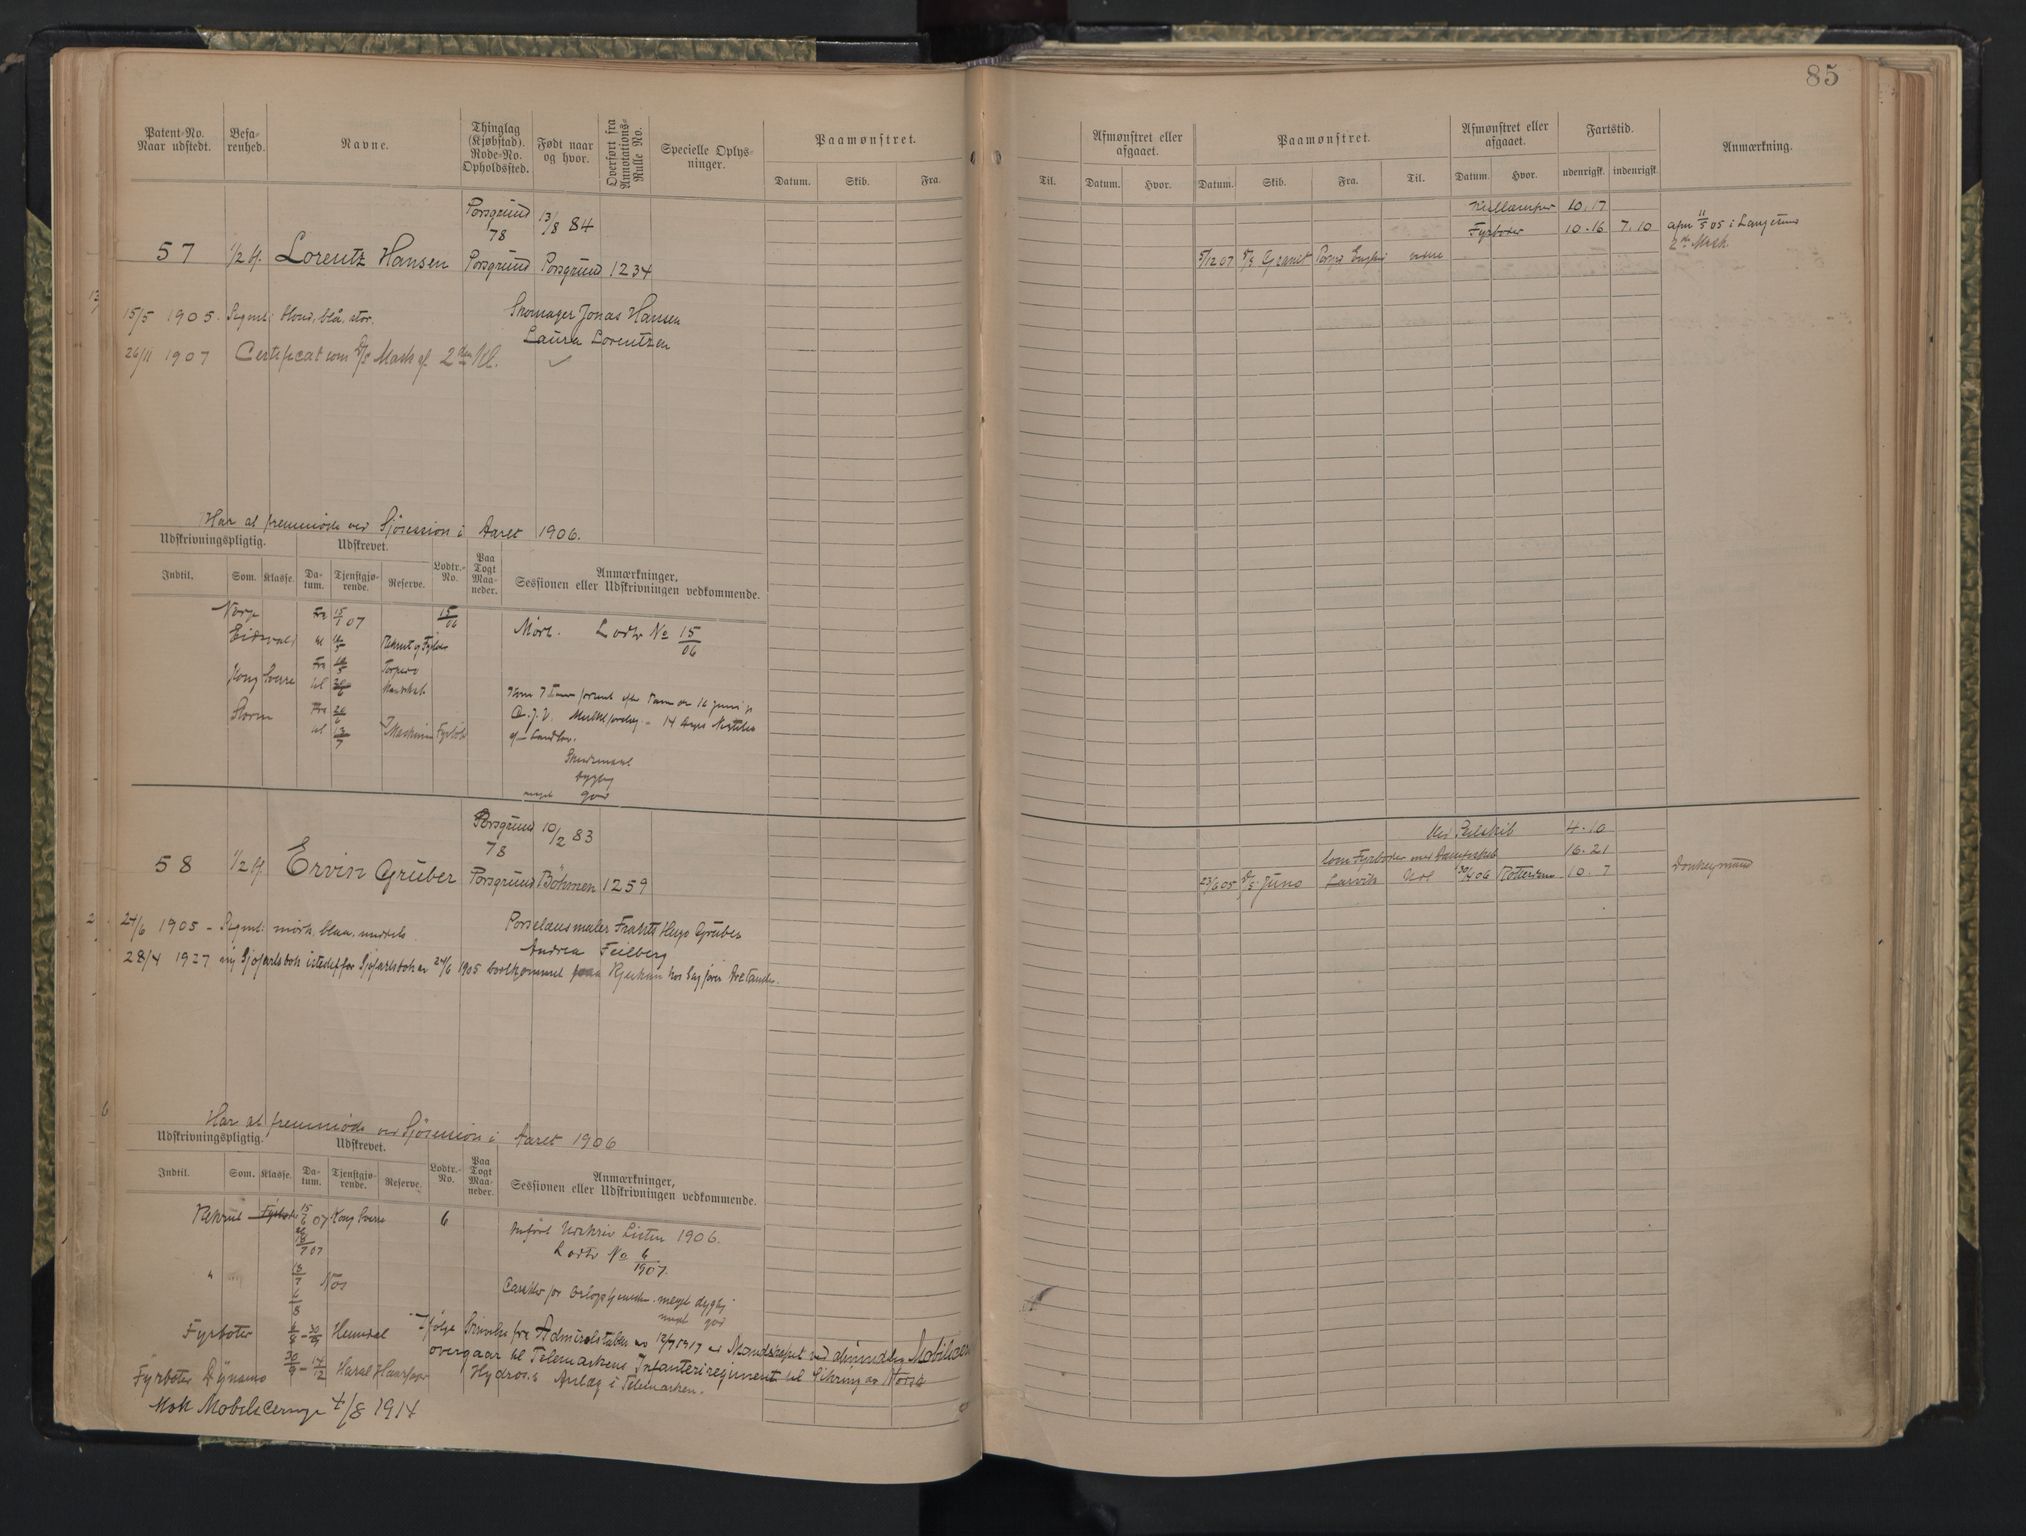 85
Patent-No. Naar udstedt.
Befarenhed.
Navne.
Thinglag (Kjøbstad). Rode-No. Opholdssted.
Født naar og hvor.
Overført fra Annotations-Rulle No.
Specielle Oplysninger.
Paamønstret.
Datum. Skib. Fra.
Til.
Afmønstret eller afgaaet.
Datum. Hvor.
Paamønstret.
Datum. Skib. Fra. Til.
Afmønstret eller afgaaet.
Datum. Hvor.
Fartstid.
udenrigsk. indenrigsk.
Anmærkning.
Porsgrund 13/8 84
78
57 1/2 bf. Lorentz Hansen Porsgrund Porsgrund 1234
15/5 1905. Signal: blond, blå, stor. Skomager Jonas Hansen
Laura Lorentzen
26/11 1907 Certificat som Mask af 2den Kl.
Kullemper 10.17
Fyrbøter 10.16 7.10
11/5 05 i Langesund
2den Mask.
5/12 07 Granit
Har at fremmøde ved Sjøsession i Aaret 1906.
Udskrivningspligtig.
Udskrevet.
Indtil. Som. Klasse. Datum. Tjenstgjørende. Reserve. Lodtr.-No. Paa Togt Maaneder.
Anmærkninger, Sessionen eller Udskrivningen vedkommende.
Norge Fra 15/1 07 15/06
Mørk. Lodtr No 15/06
Eidsvold til
Kong Sverre
Storm
Torpedo
Fyrbøt
Skudsmaal
dygtig
meget god
Porsgrund 10/2 83
78
58 1/2 bf. Ervin Gruber Porsgrund Böhmen 1259
24/6 1905 - Signal: mørk, blaa, middels. Porselænsmaler Frants Hugo Gruber
Andrea Feilberg
28/4 1927 ny Sjøfartsbok istedetfor Sjøfartsbok av 24/6 1905 bortkommet paa Rjukan
Ved Seilskib 4.10
Som Fyrbøder med Dampskib 16.21
23/6 05 D/S Juno Larvik 30/4 06 Rotterdam 10.7
Donkeymand
Har at fremmøde ved Sjøsession i Aaret 1906
Udskrivningspligtig.
Udskrevet.
Indtil. Som. Klasse. Datum. Tjenstgjørende. Reserve. Lodtr.-No. Paa Togt Maaneder.
Anmærkninger, Sessionen eller Udskrivningen vedkommende.
Rekrut Fyrbøter 15/6 07 Kong Sverre 6
Anført Udskriv Listen 1906.
Lodtr No 6/1907.
" 18/7 Nor
6/8
Karakter for Orlogstjeneste meget dygtig
meget god
Fyrbøter 6/8 - 30/9 Heimdal
Ifølge Skrivelse fra Admiralstaben av 12/9 1917 er Mandskapet ved almindelig Mobilisering
overgaar til Telemarkens Infanteriregiment til Sikring av Norsk
Fyrbøter Dynamo 30/9 - 14/12 Harald Haarfagre
Hydros Anlæg i Telemarken.
Møtt Mobilisering 4/8 1914